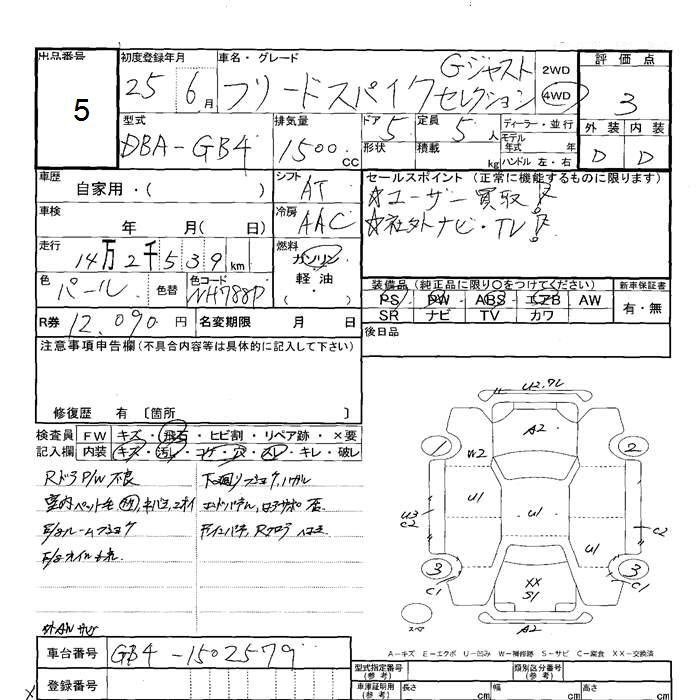 出品番号
5
初度登録年月
25 6月
車名・グレード
フリードスパイク Gジャスト
セレクション
2WD
4WD
評価点
3
外装 内装
D D
型式
DBA-GB4
排気量
1500cc
ドア 5
形状
定員 5人
積載 kg
ディーラー・並行
モデル
年式 年
ハンドル 左・右
車歴
自家用・( )
シフト
AT
セールスポイント (正常に機能するものに限ります)
☆ユーザー買取!
☆社外ナビ・TV!
車検
年 月( 日)
冷房
AAC
走行
14万2千539km
燃料
ガソリン
軽油
( ・ )
色
パール
色替
色コード
NH788P
装備品(純正品に限り○をつけてください)
PS PW ABS エアB AW
SR ナビ TV カワ
新車保証書
有・無
R券 12,090円
名変期限 月 日
後日品
注意事項申告欄(不具合内容等は具体的に記入して下さい)
修復歴 有 〔箇所 〕
検査員
記入欄
FW キズ・飛石・ヒビ割・リペア跡・×要
内装 キズ・汚レ・コゲ・穴・スレ・キレ・破レ
RドラP/W不良
U2.フレ
A2
W2
1
2
U1
U1
U3
C2
U1
C2
3
3
C1
C1
XX
S1
A2
A-キズ E-エクボ U-凹み W-補修跡 S-サビ C-腐食 XX-交換済
車台番号 GB4-1502579
登録番号
型式指定番号
(参考)
類別区分番号
(参考)
車庫証明用
(参考)
長さ cm
幅 cm
高さ cm